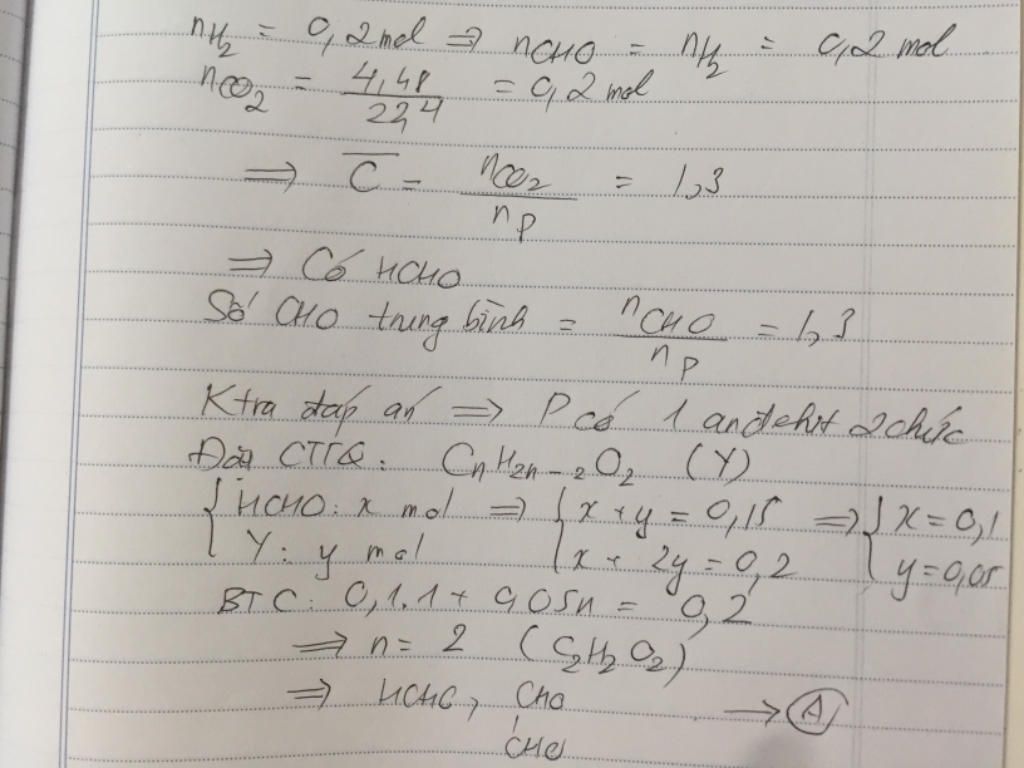 nH₂ = 0,2 mol ⇒ nCHO = nH₂ = 0,2 mol
nCO₂ = 4,48 / 22,4 = 0,2 mol
⇒ C̅ = nCO₂ / nP = 1,3
⇒ Có HCHO
Số CHO trung bình = nCHO / nP = 1,3
Ktra đáp án ⇒ P có 1 anđehit 2 chức
Đặt CTTQ: CnH2n-2O2 (Y)
{ HCHO: x mol ⇒ { x + y = 0,15 ⇒ { x = 0,1
Y: y mol x + 2y = 0,2 y = 0,05
BTC: 0,1.1 + 0,05n = 0,2
⇒ n = 2 (C₂H₂O₂)
⇒ HCHO, CHO → A
CHO